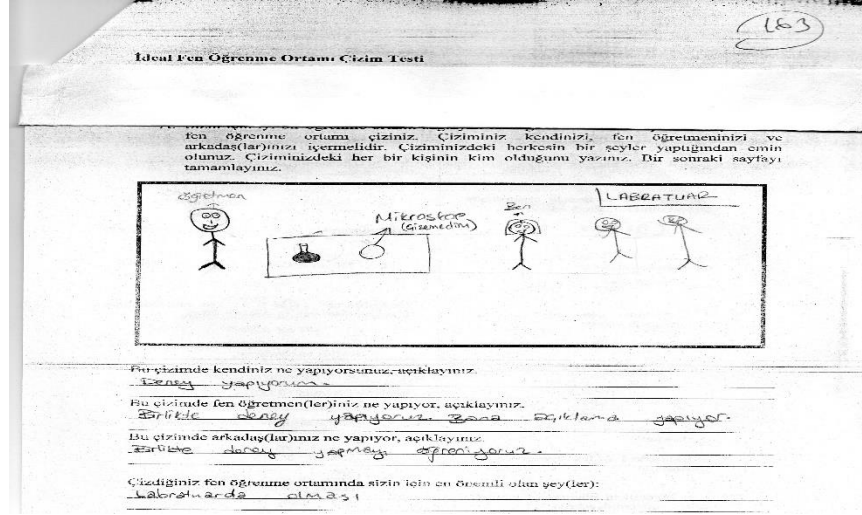 163
İdeal Fen Öğrenme Ortamı Çizim Testi
fen öğrenme ortamı çiziniz. Çiziminiz kendinizi, fen öğretmeninizi ve
arkadaş(lar)ınızı içermelidir. Çiziminizdeki herkesin bir şeyler yaptığından emin
olunuz. Çiziminizdeki her bir kişinin kim olduğunu yazınız. Bir sonraki sayfayı
tamamlayınız.
öğretmen
Mikroskop
(Çizemedim)
Ben
LABRATUAR
Bu çizimde kendiniz ne yapıyorsunuz, açıklayınız.
Deney yapıyorum.
Bu çizimde fen öğretmen(ler)iniz ne yapıyor, açıklayınız.
Birlikte deney yapıyoruz. Bana açıklama yapıyor.
Bu çizimde arkadaş(lar)ınız ne yapıyor, açıklayınız.
Birlikte deney yapmayı öğreniyoruz.
Çizdiğiniz fen öğrenme ortamında sizin için en önemli olan şey(ler):
Labratuarda olması